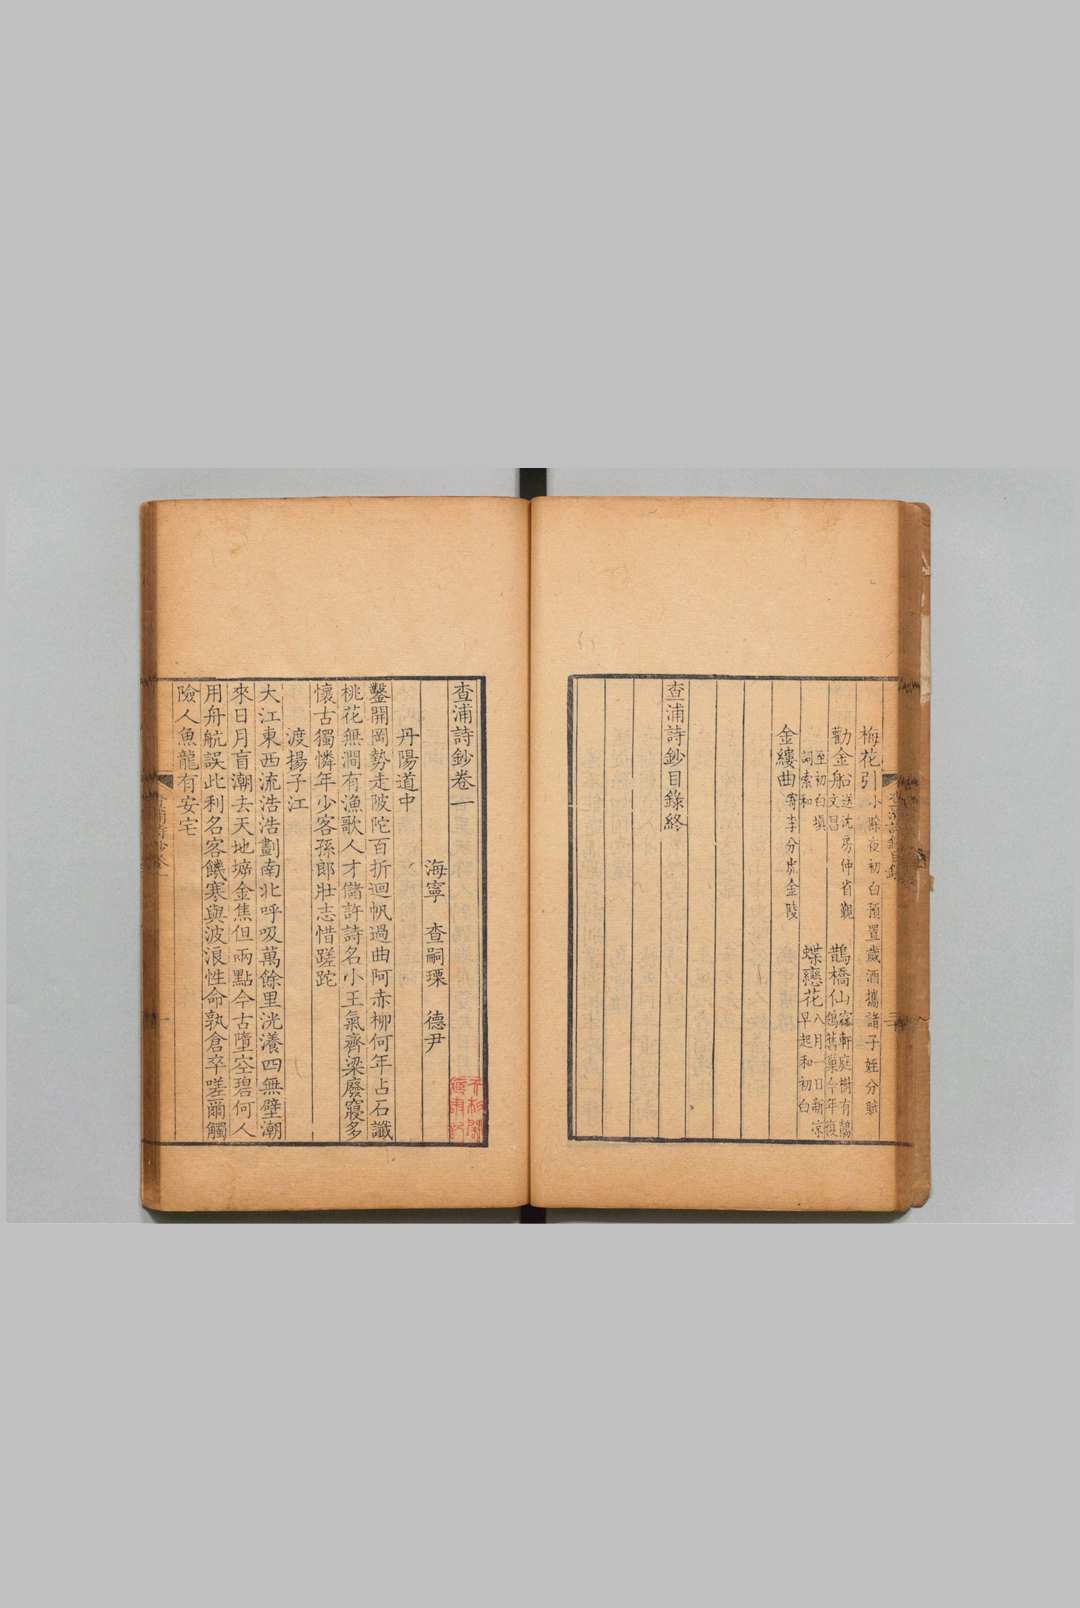 梅花引 小除夜初白預置歲酒攜諸子姪分賦
勸金船 送沈房仲省覲
至文昌
鵲橋仙 寤軒庭樹有鵲
鵲舊巢今年復
至初白填
詞索和
蝶戀花 八月一日新涼
早起和初白
金縷曲 寄李分虎金陵
查浦詩鈔目錄終
查浦詩鈔卷一
海寧 查嗣瑮 德尹
丹陽道中
鑿開岡勢走陂陀百折迴帆過曲阿赤柳何年占石讖
桃花無澗有漁歌人才儲許詩名小王氣齊梁廢寢多
懷古獨憐年少客孫郎壯志惜蹉跎
渡揚子江
大江東西流浩浩劃南北呼吸萬餘里洸瀁四無壁潮
來日月盲潮去天地坼金焦但兩點今古墮空碧何人
用舟航誤此利名客饑寒與波浪性命孰倉卒嗟爾觸
險人魚龍有安宅